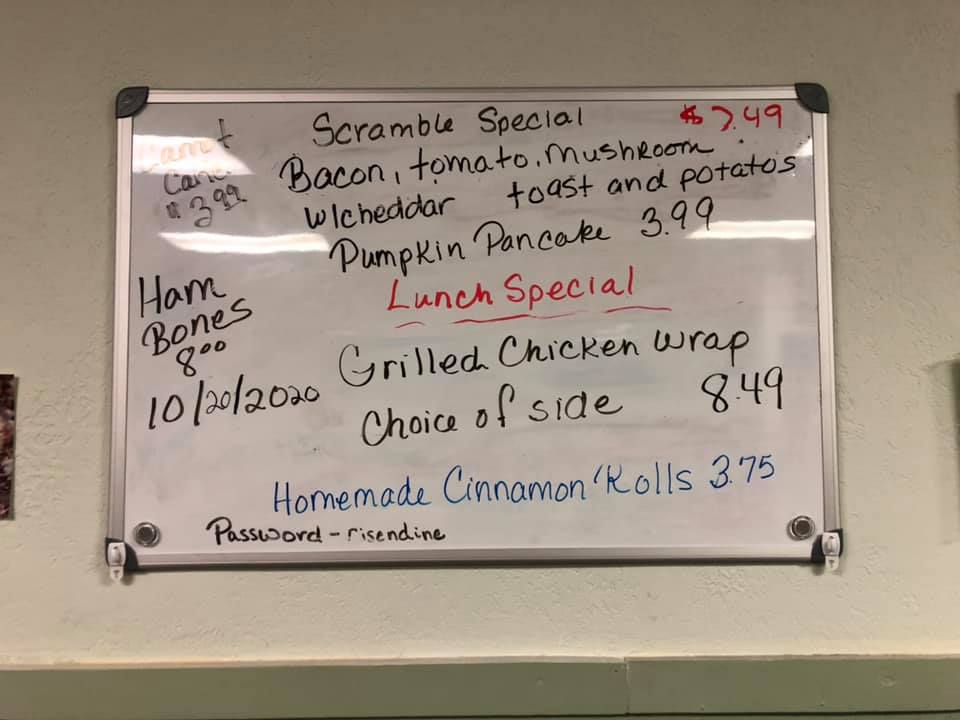 Scramble Special $7.49
Bacon, tomato, Mushroom
w/cheddar toast and potatos
Pumpkin Pancake 3.99
Lunch Special
Grilled Chicken wrap
Choice of side 8.49
Homemade Cinnamon Rolls 3.75
Password - risendine
Cake
$3.99
Ham
Bones
8.00
10/20/2020